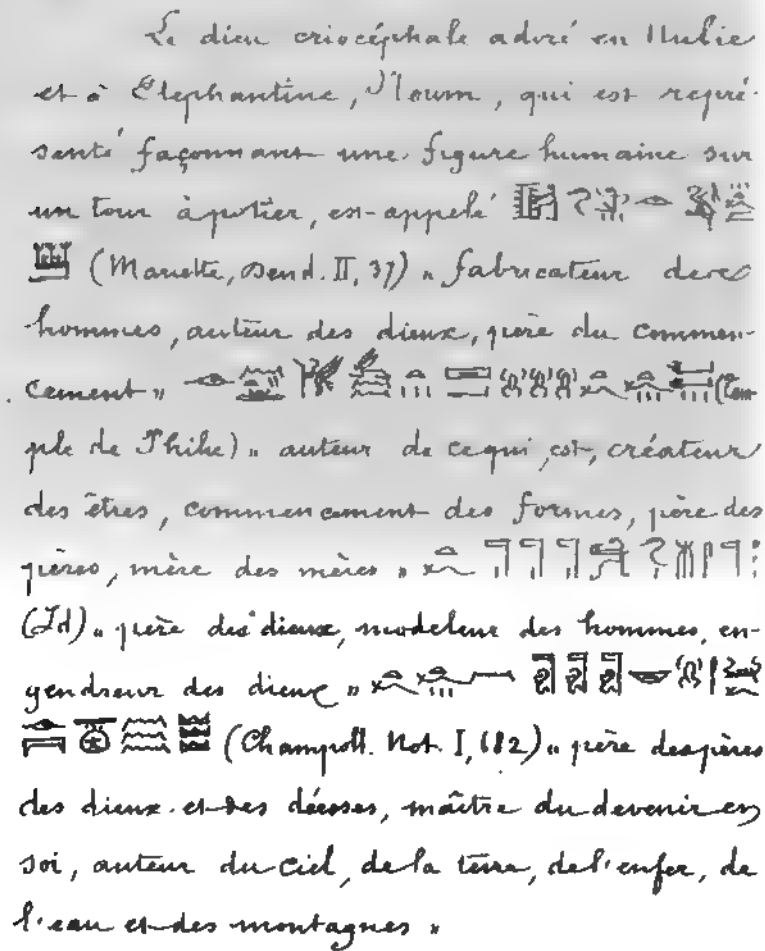 Le dieu criocéphale adoré en Nubie
et à Elephantine, Noum, qui est repré-
senté façonnant une figure humaine sur
un tour à potier, est appelé
(Mariette, Dend. II, 37) « fabricateur des
hommes, auteur des dieux, père du commen-
cement » (Tem-
ple de Philæ) « auteur de ce qui est, créateur
des êtres, commencement des formes, père des
pères, mère des mères »
(Id) « père des dieux, modeleur des hommes, en-
gendreur des dieux »
(Champoll. Not. I, 682) « père des pères
des dieux et des déesses, maître du devenir en
soi, auteur du ciel, de la terre, de l'enfer, de
l'eau et des montagnes »